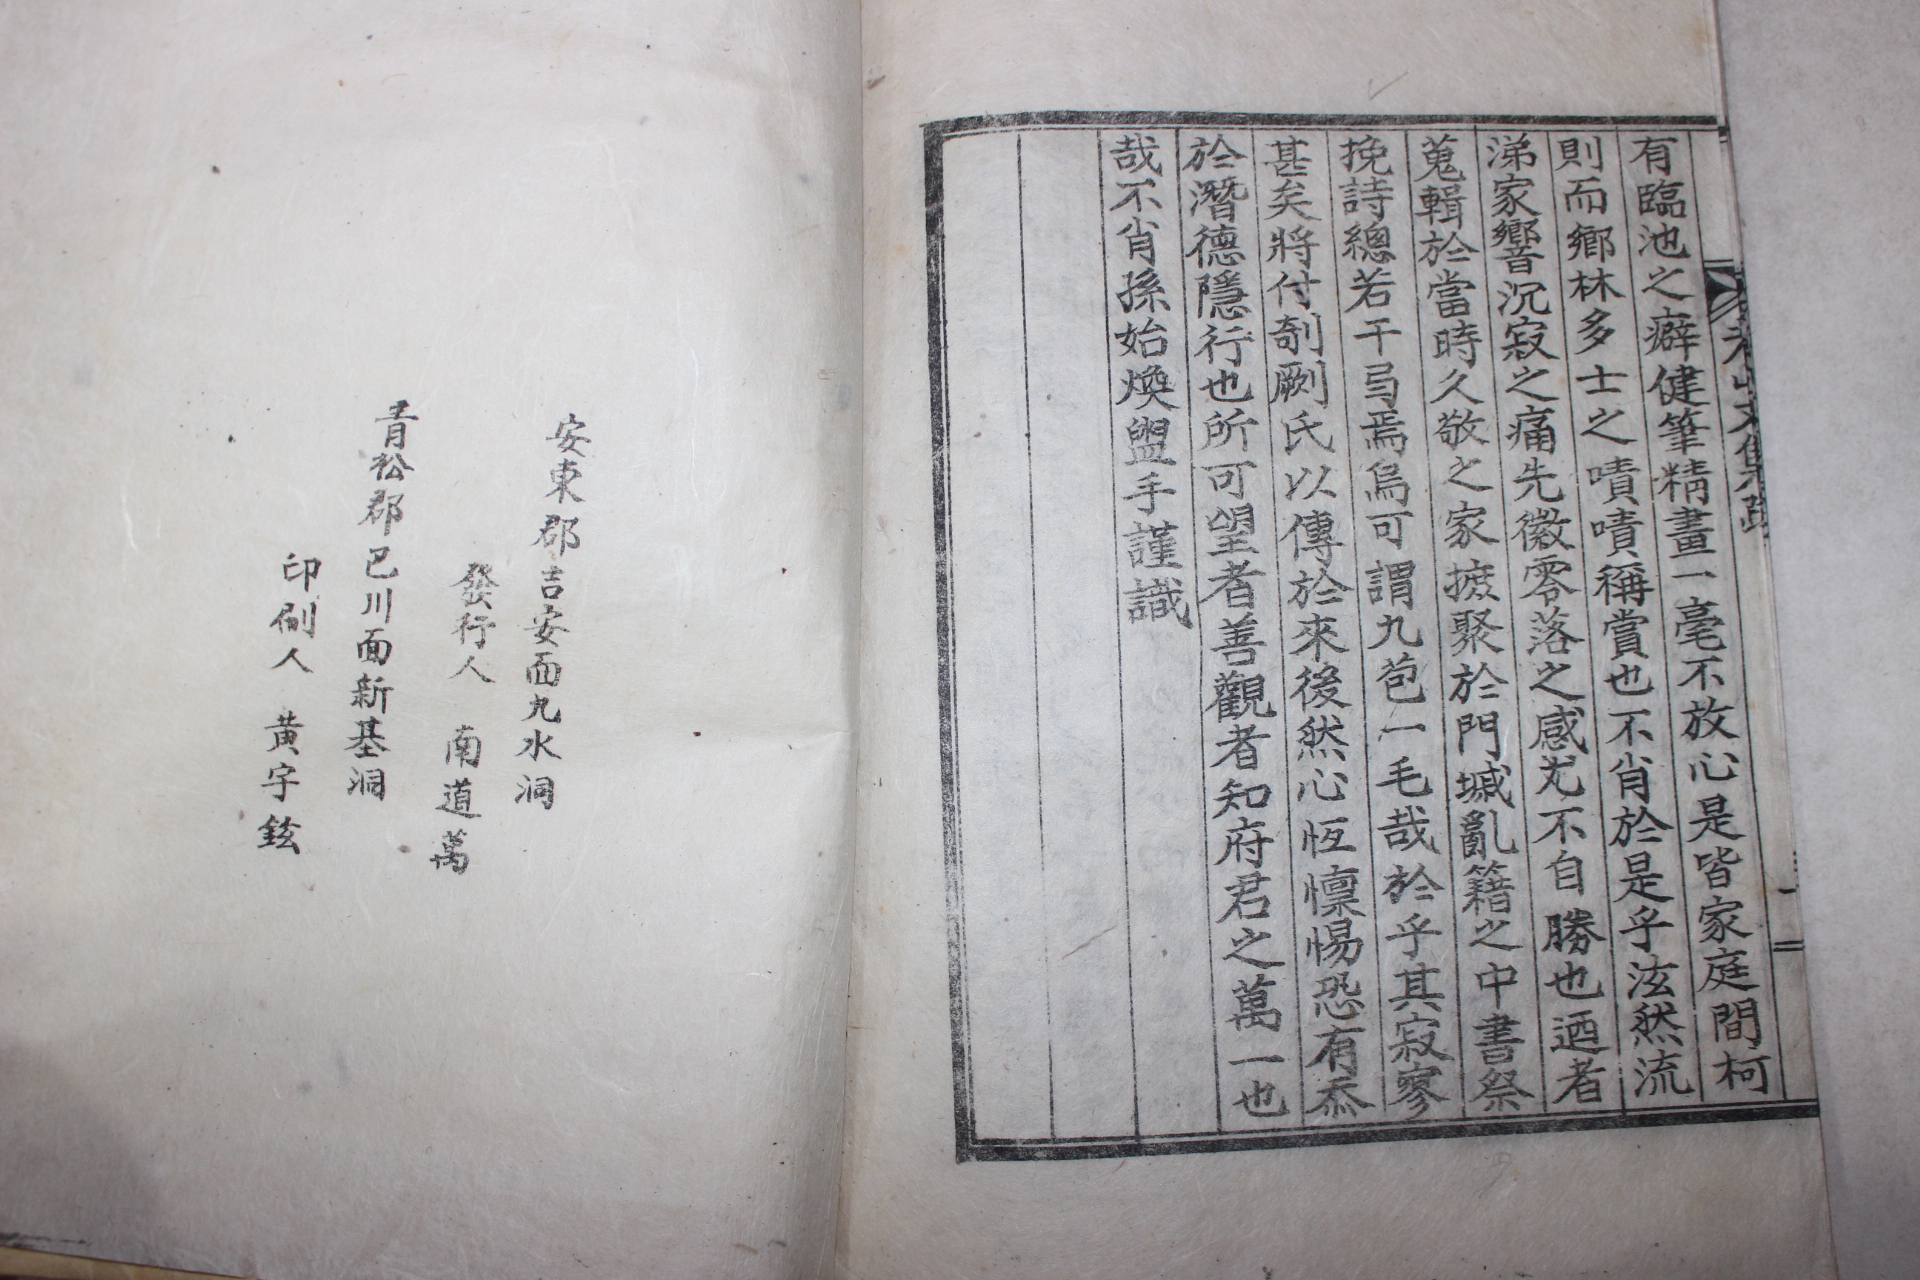 有臨池之癖健筆精畫一毫不放心是皆家庭間柯
則而鄕林多士之嘖嘖稱賞也不肖於是乎泫然流
涕家響沉寂之痛先徽零落之感尤不自勝也迺者
蒐輯於當時久敬之家摭聚於門墄亂籍之中書祭
挽詩總若干弓焉烏可謂九苞一毛哉於乎其寂寥
甚矣將付剞劂氏以傳於來後然心恆懍惕恐有忝
於潛德隱行也所可望者善觀者知府君之萬一也
哉不肖孫始煥盥手謹識
安東郡吉安面九水洞
發行人 南道萬
靑松郡巴川面新基洞
印刷人 黃字鉉